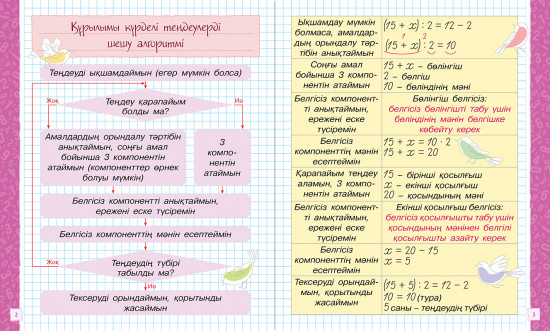 Құрылымы күрделі теңдеулерді
шешу алгоритмі
Теңдеуді ықшамдаймын (егер мүмкін болса)
Жоқ
Иә
Теңдеу қарапайым
болды ма?
Амалдардың орындалу тәртібін
анықтаймын, соңғы амал
бойынша 3 компонентін
атаймын (компоненттер өрнек
болуы мүмкін)
3
компо-
нентін
атаймын
Белгісіз компонентті анықтаймын,
ережені еске түсіремін
Белгісіз компоненттің мәнін есептеймін
Жоқ
Иә
Теңдеудің түбірі
табылды ма?
Тексеруді орындаймын, қорытынды
жасаймын
2
Ықшамдау мүмкін
болмаса, амалдар-
дың орындалу тәр-
тібін анықтаймын
(15 + x) : 2 = 12 – 2
1 2
(15 + x) : 2 = 10
Соңғы амал
бойынша 3 компо-
нентін атаймын
15 + x – бөлінгіш
2 – бөлгіш
10 – бөліндінің мәні
Белгісіз компонент-
ті анықтаймын,
ережені еске
түсіремін
Бөлінгіш белгісіз:
белгісіз бөлінгішті табу үшін
бөліндінің мәнін бөлгішке
көбейту керек
Белгісіз
компоненттің мәнін
есептеймін
15 + x = 10 · 2
15 + x = 20
Қарапайым теңдеу
аламын, 3 компо-
нентін атаймын
15 – бірінші қосылғыш
x – екінші қосылғыш
20 – қосындының мәні
Белгісіз компонент-
ті анықтаймын,
ережені еске
түсіремін
Екінші қосылғыш белгісіз:
белгісіз қосылғышты табу үшін
қосындының мәнінен белгілі
қосылғышты азайту керек
Белгісіз
компоненттің мәнін
есептеймін
x = 20 – 15
x = 5
Тексеруді орындай-
мын, қорытынды
жасаймын
(15 + 5) : 2 = 12 – 2
10 = 10 (тура)
5 саны – теңдеудің түбірі
3